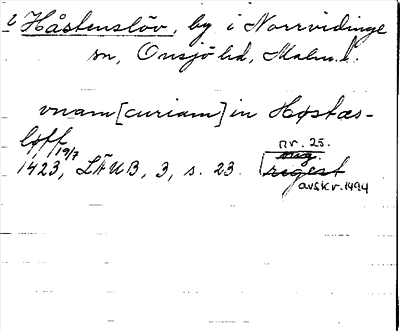 Håstenslöv, by i Norrvidinge
sn, Onsjö hd, Malm. l.
vnam [curiam] in Høstæs-
løff
19/7
1423, LÄUB, 3, s. 23.
nr. 25.
orig.
regest
avskr. 1494